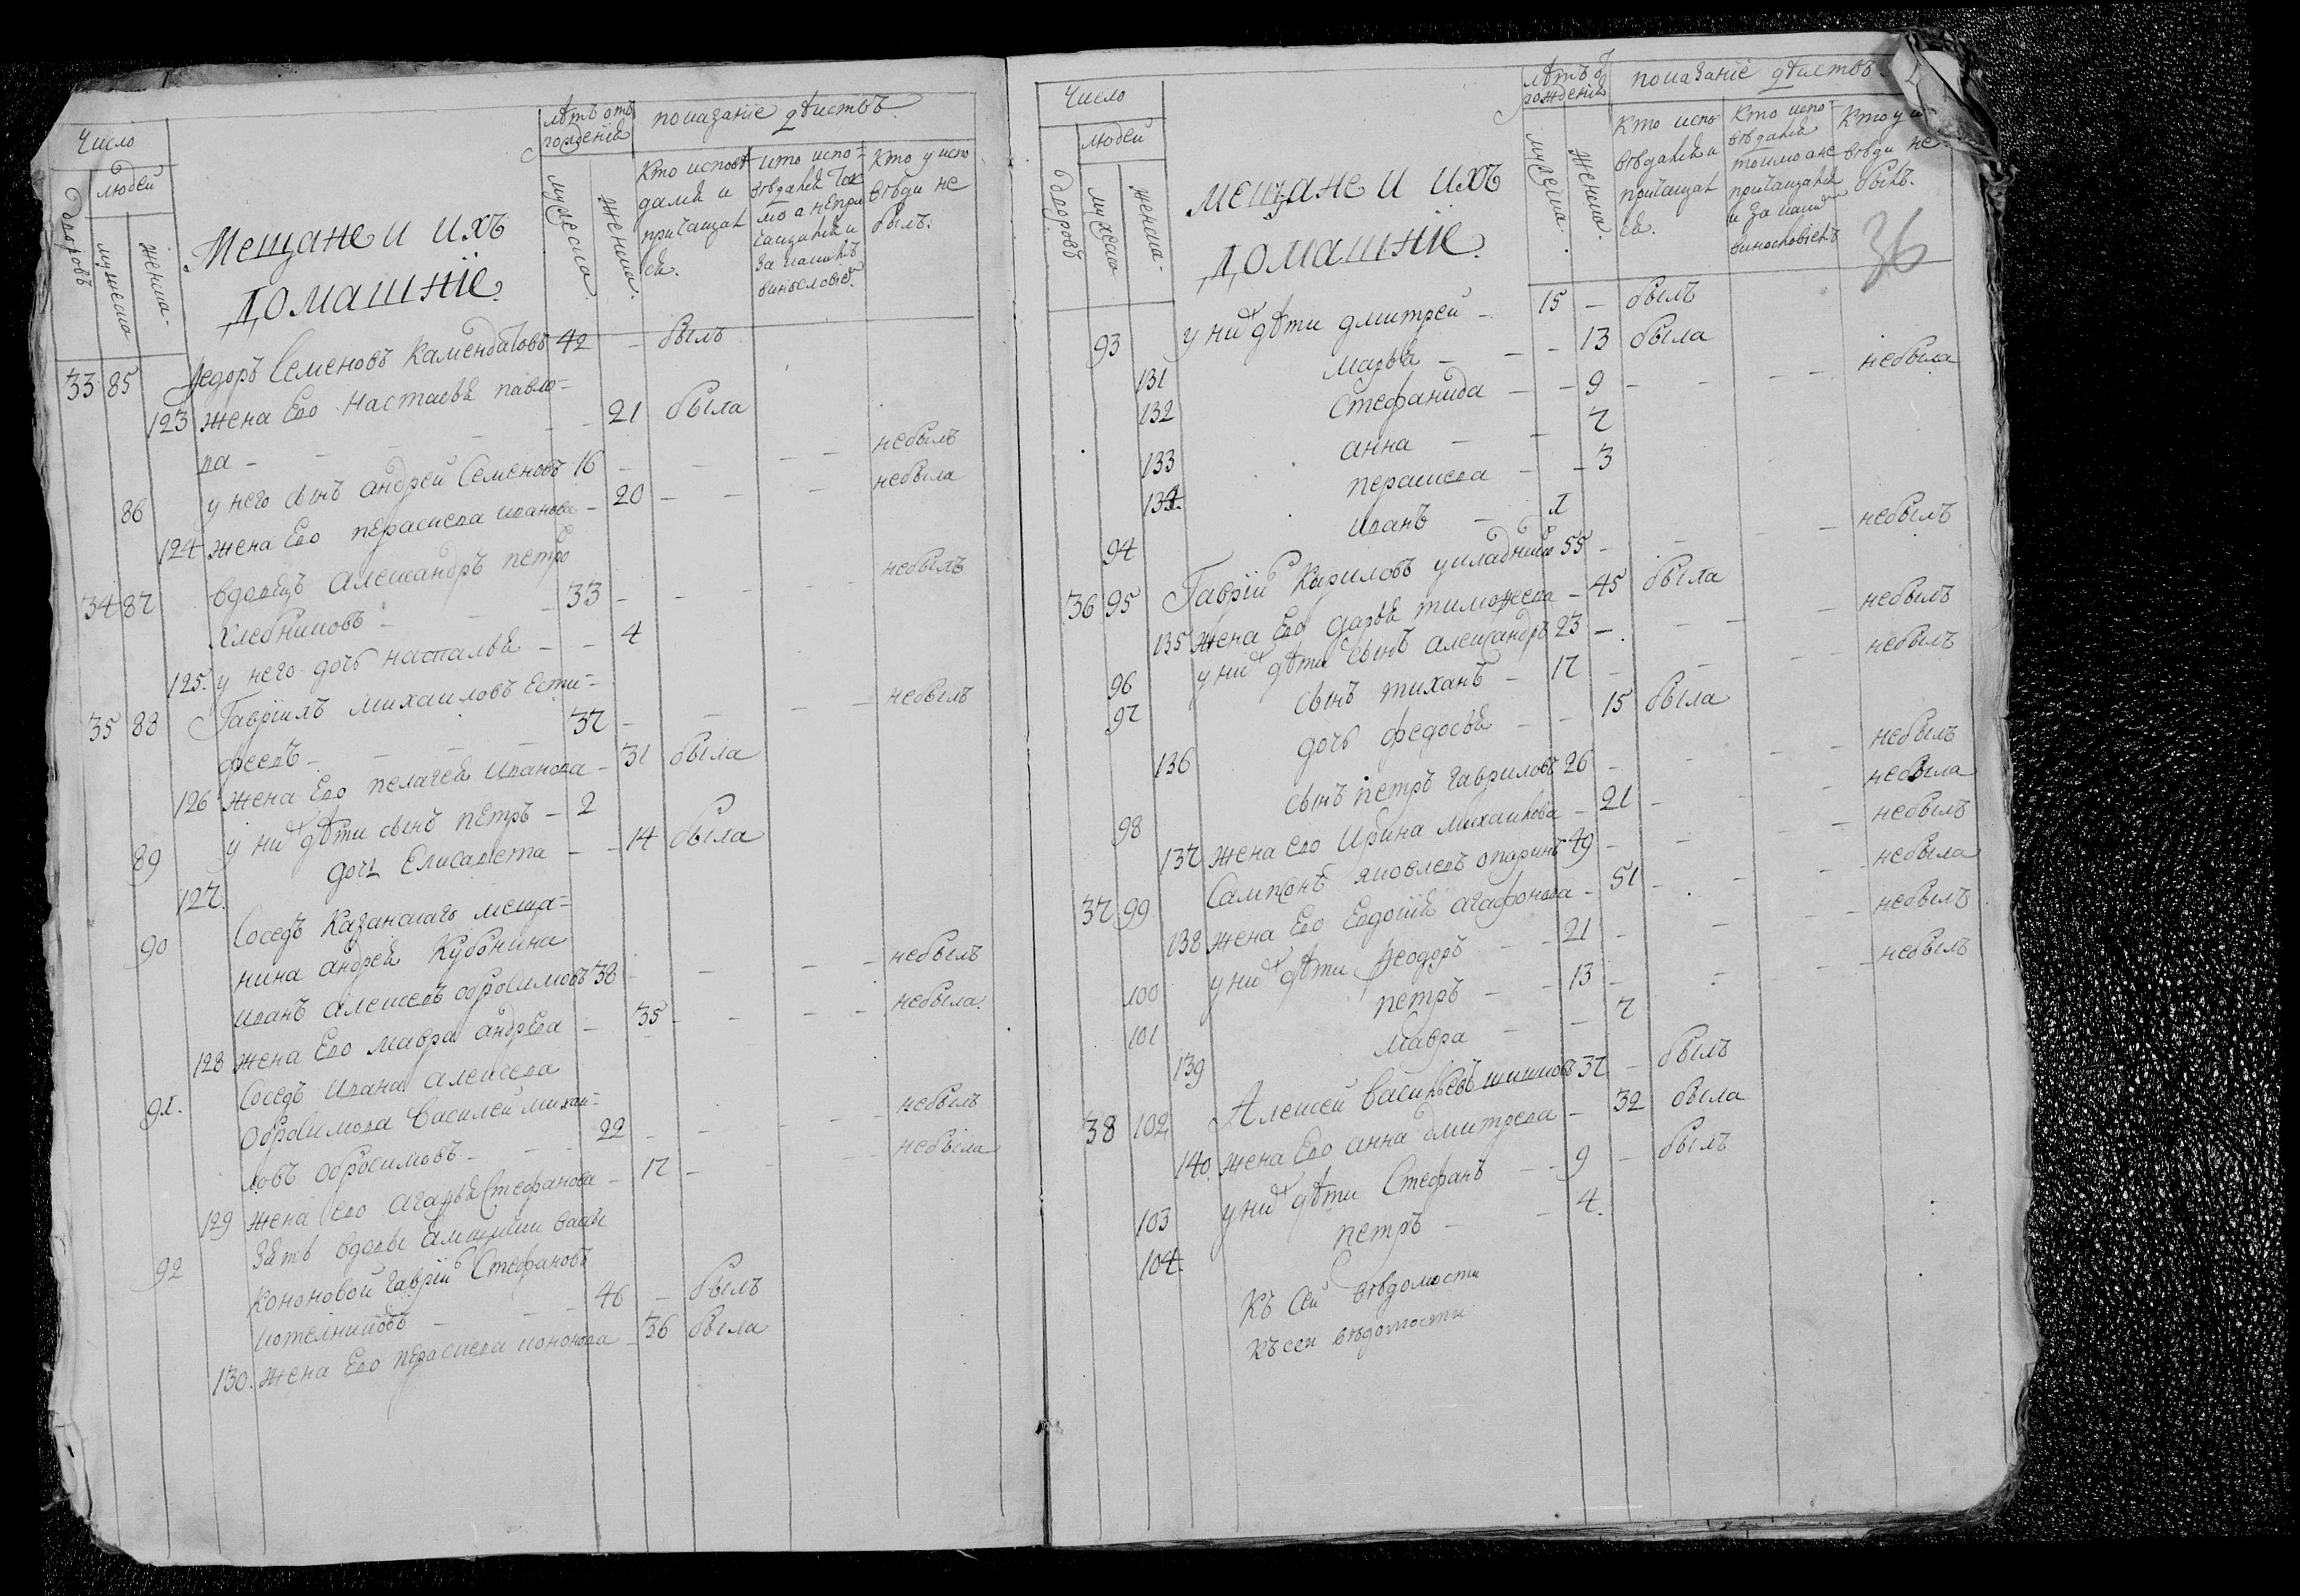 Число
людей
дворовъ
мужеска
женска
Мещане и ихъ
домашнїе
лѣтъ отъ
рожденїя
мужеска.
женска.
показанїе дѣиствъ.
Кто исповѣ
дался и
причащал
ся.
кто испо-
вѣдался ток
мо а непри
чащался и
за какимъ
винословїе.
Кто у испо
вѣди не
былъ.
33 85 Ѳедоръ Семеновъ 42 – былъ
123 жена Ево Настасья павло-
ва – – – – 21 была
86 у него сынъ андрей Семеновъ 16 – – – – небылъ
124 жена Ево параскева иванова – 20 – – – небыла
34 87 вдовецъ Александръ петро
Хлебниковъ – – – 33 – – – – небылъ
125. у него дочь наталья – – 4
35 88 Гаврїилъ михаиловъ Ести-
феевъ – – – – 37 – – – – небылъ
126 жена Ево пелагея Иванова – 31 была
89 у них дѣти сынъ петръ – 2
127. дочь Елисавета – – 14 была
90 Соседъ Казанскаго меща-
нина андрея
иванъ алексеевъ обросимовъ 38 – – – – небылъ
128 жена Ево мавра андрева – 35 – – – – небыла.
91. Соседъ Ивана алексева
Обросимова Василей михаи-
ловъ обросимовъ – – – 22 – – – – небылъ
129 жена ево агафья Стефанова – 17 – – – – небыла
92 Зять вдовы
Кононовой гаврїил Стефановъ
котелниковъ – – – 46 – былъ
130. жена Ево параскева кононова – 36 была
Число
людей
дворовъ
мужеска
женска
мещане и ихъ
домашнїе.
лѣтъ от
рожденїя
мужеска.
женска.
показанїе дѣиствъ
Кто испо
вѣдался и
причащал
ся.
Кто испо-
вѣдался
токмо ане
причащался
и за каким
винословїемъ
Кто у и
вѣди не
былъ.
36
93 у них дѣти дмитрей – 15 – былъ
131 марѳа – – – 13 была
132 Стефанида – – 9 – – – – небыла
133 анна – – 7
134. параскева – – 3
94 иванъ – 1
36 95 Гаврїил Кириловъ 55 – – – – небылъ
135 жена Ево дарья тимофеева – 45 была
96 у них дѣти сынъ александръ 23 – – – – небылъ
97 сынъ тиханъ – 17 – – – – небылъ
136 дочь федосья – – 15 была
98 сынъ петръ гавриловъ 26 – – – – небылъ
137 жена ево Ирина михаилова – 21 – – – небыла
37 99 Сампсонъ яковлевъ опаринъ 49 – – – – небылъ
138 жена Ево Евдокїя агафонова – 51 – – – небыла
100 у них дѣти Ѳеодоръ – – 21 – – – – небылъ
101 петръ – – 13 – – – – небылъ
139 мавра – – 7
38 102 Алексей Васильевъ шишковъ 37 – былъ
140. жена Ево анна дмитрева – 32 была
103 у них дѣти Стефанъ – – 9 – былъ
104. петръ – – 4.
Къ Сей вѣдомости
къ сеи вѣдомости